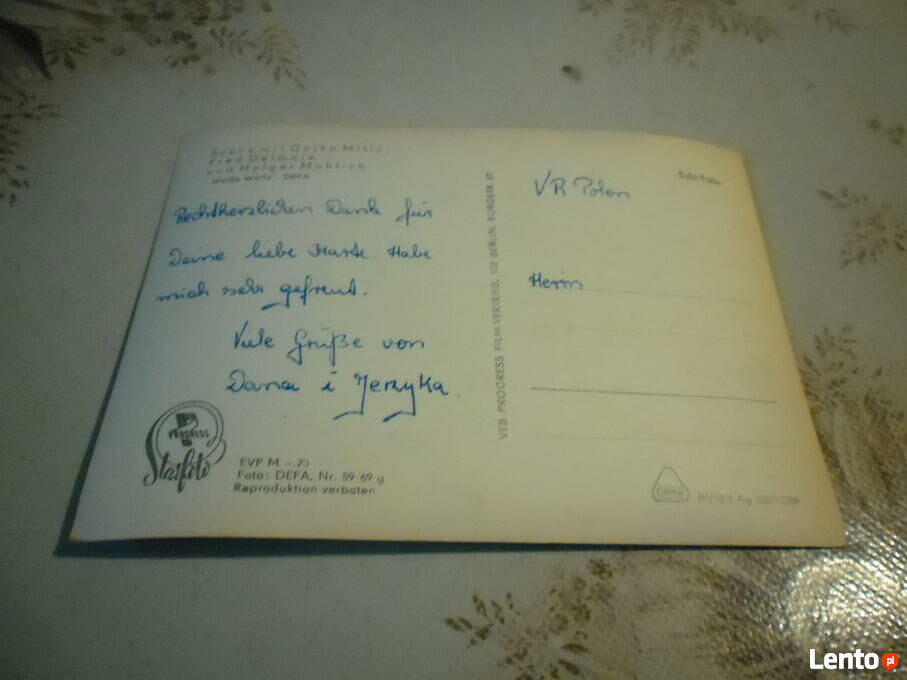 Szene mit Gojko Mitić,
Fred Delmare
und Holger Mahlich
"Weiße Wölfe", DEFA
Rechtherzlichen Dank für
Deine liebe Karte. Habe
mich sehr gefreut.
Viele Grüße von
Dana i Jerzyka.
PROGRESS
Starfoto
EVP M –.20
Foto: DEFA, Nr. 89/69 g
Reproduktion verboten
VEB PROGRESS FILM-VERTRIEB, 102 BERLIN, BURGSTR. 27
Echt Foto
VR Polen
Herrn
III/18/6 Ag 500/
Lento pl